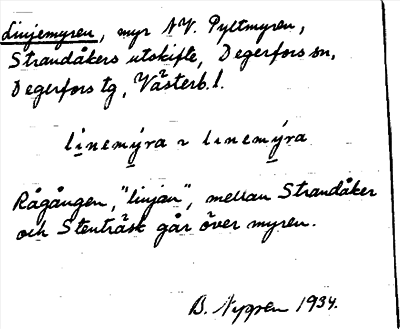 Linjemyren, myr N.V. Pyltmyren,
Strandåkers utskifte, Degerfors sn,
Degerfors tg, Västerb. l.
li̱nemý̱ra ~ lınemý̱ra
Rågången, "linjan", mellan Strandåker
och Stenträsk går över myren.
B. Nyppen 1934.